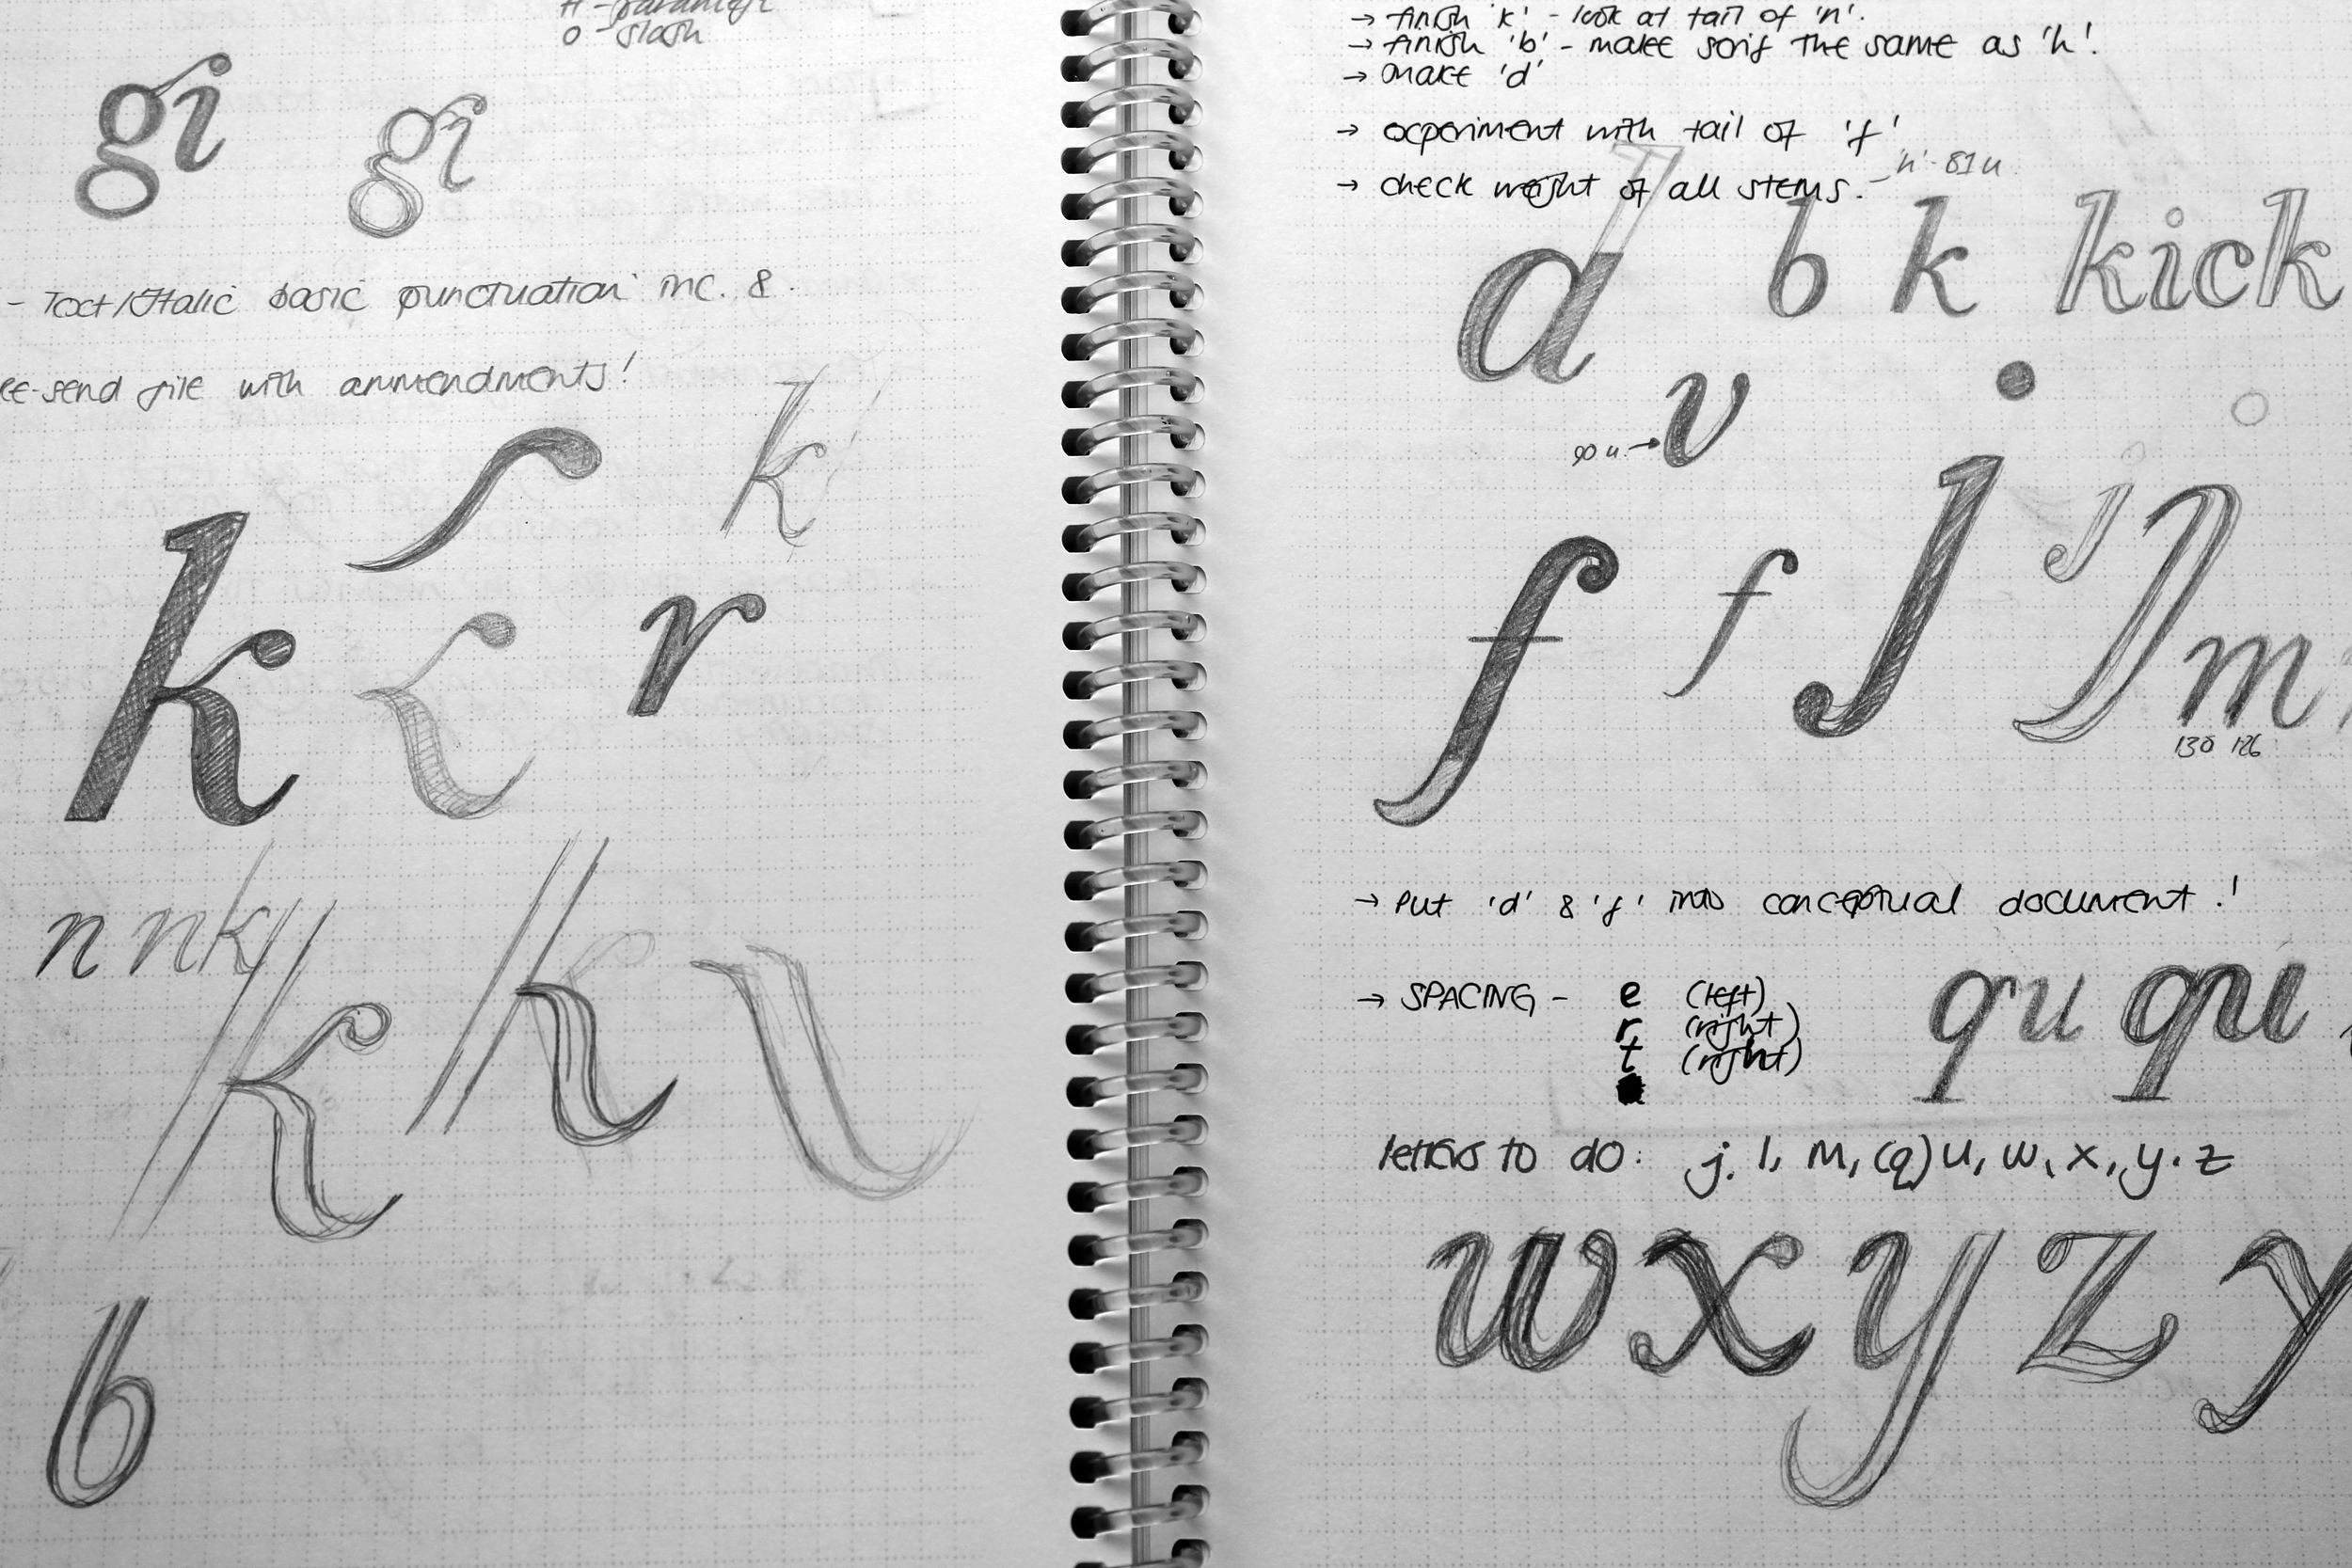 0 - slash
gi gi
- Text/Italic basic punctuation inc. &.
re-send file with ammendments!
k
k r
n nk
k k
b
→ finish 'k' - look at tail of 'n'.
→ finish 'b' - make serif the same as 'h'!
→ make 'd'
→ experiment with tail of 'f'
→ check weight of all stems. - 'n' - 81u
d b k kick
90u → v
f f j j m
130 126
→ Put 'd' & 'f' into conceptual document!
→ SPACING - e (left)
r (right)
t (right)
qu qu
letters to do: j, l, m, (q)u, w, x, y, z
w x y z y